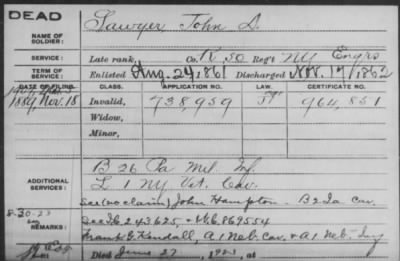 DEAD
NAME OF SOLDIER: Sawyer, John D.
SERVICE: Late rank, Co. K 50 Reg't NY Engrs
TERM OF SERVICE: Enlisted Aug. 29 1861 Discharged Nov. 17/1862
DATE OF FILING. CLASS. APPLICATION NO. LAW. CERTIFICATE NO.
1889 Nov. 18 Invalid, 738,959 964,851
Widow,
Minor,
B 26 Pa Mil. Inf.
ADDITIONAL SERVICES: L 1 NY Vet. Cav.
see (no claim) John Hampton - B 2 Ia cav.
8-20-23
REMARKS: see 243625, 869554
Frank G. Kendall, A 1 Neb. cav. & A 1 Neb. Inf
Died June 27, 1923